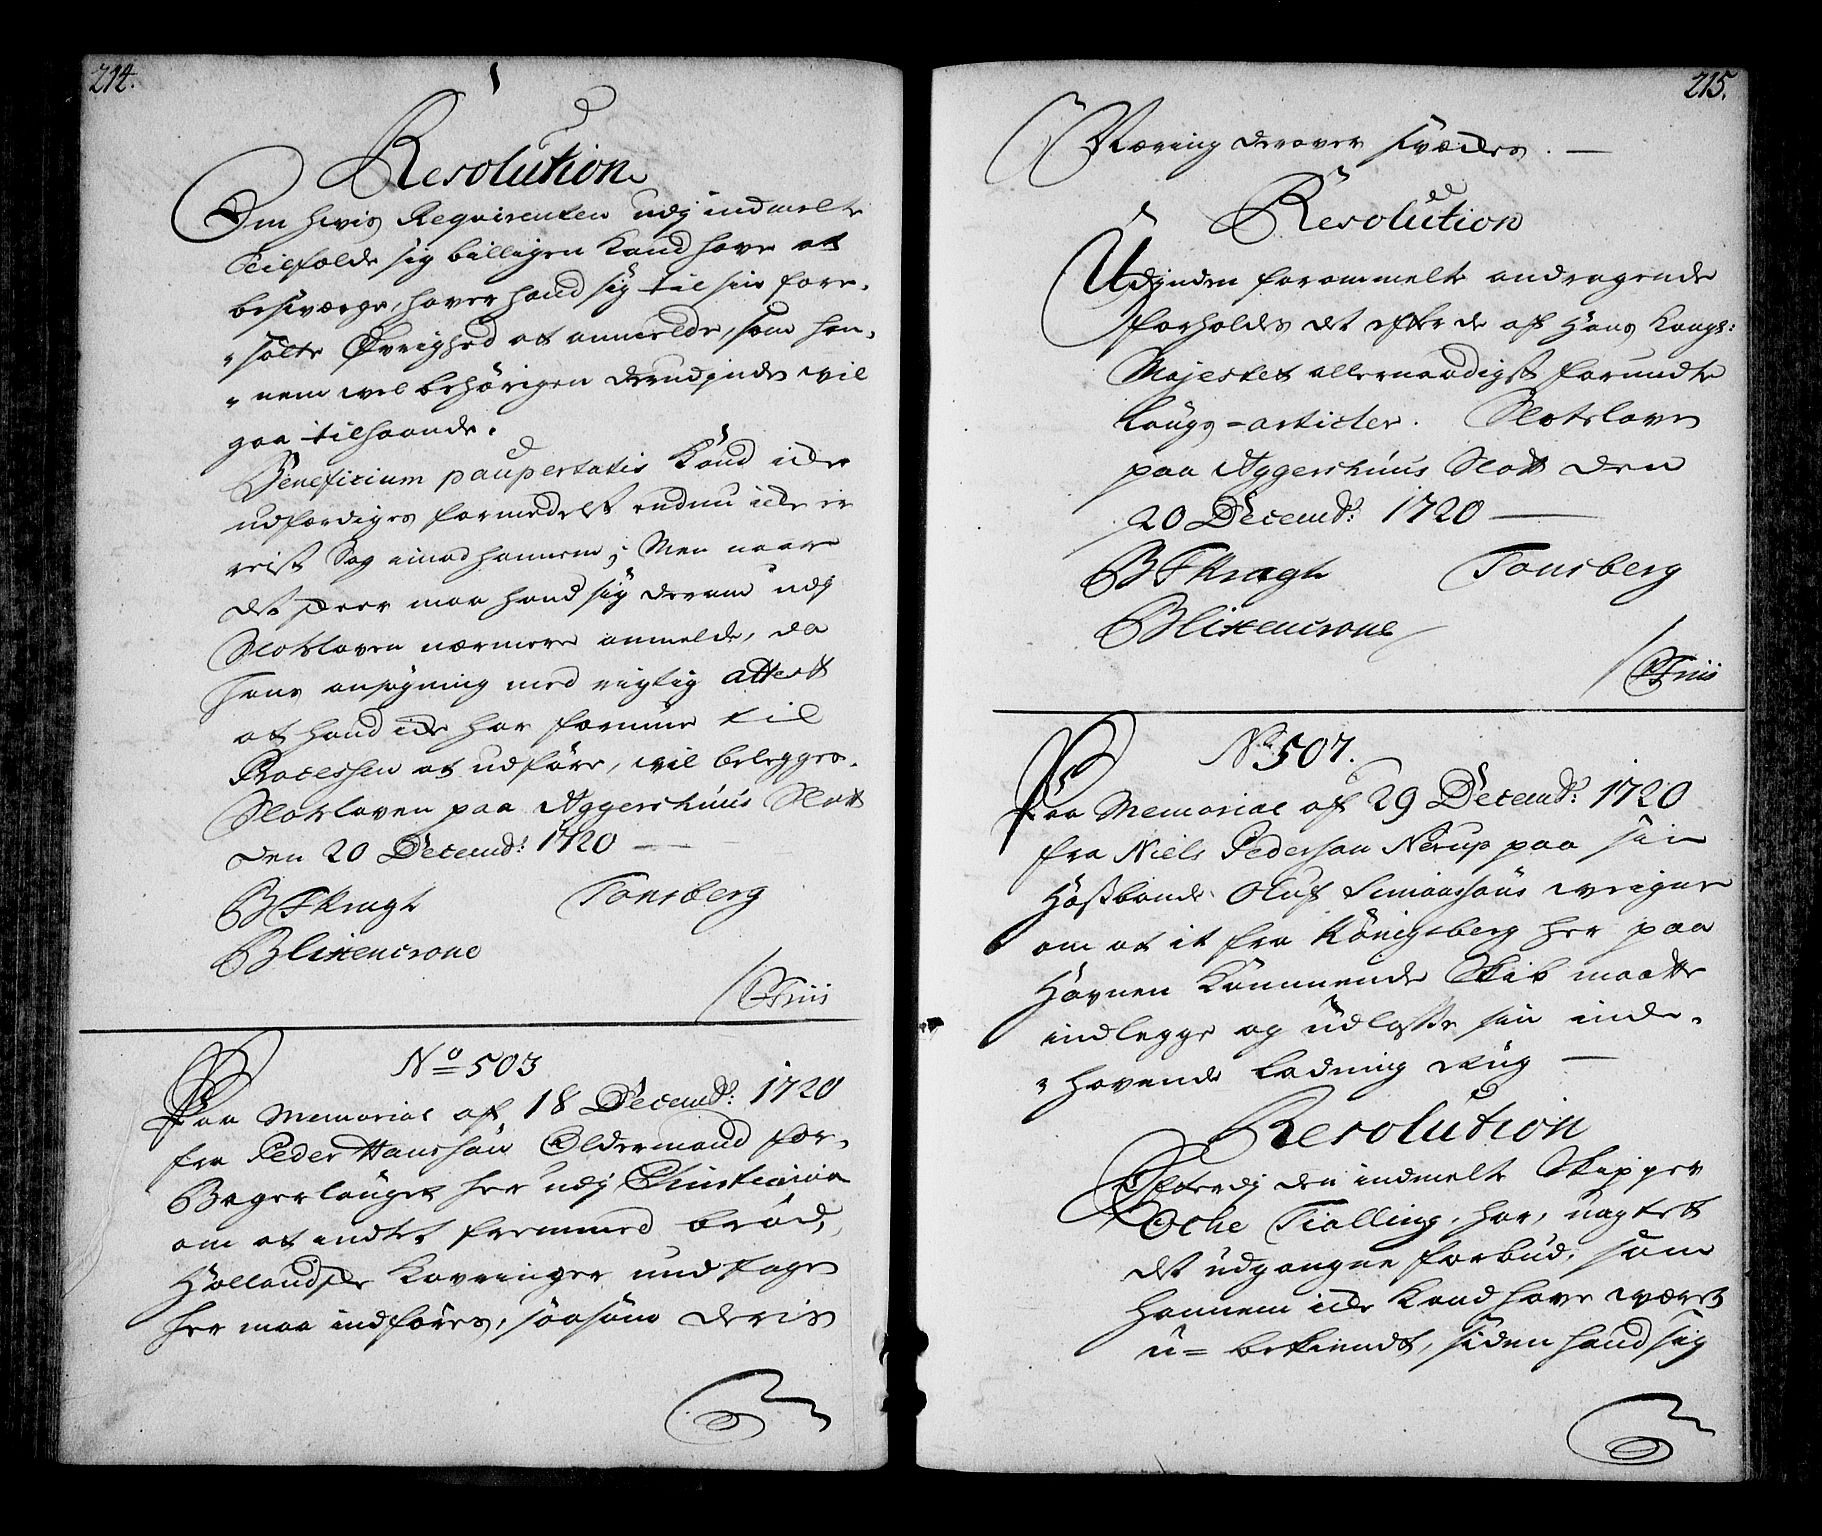 214.
Resolution
Om hvis Requirenten udj indmelte
Tilfælde sig billigen kand have at
besværge, haver hand sig til sin fore-
"satte Øvrighed at anmelde, som han-
"nem vel behörigen derudjnde vil
gaa tilhaande.
Beneficium paupertatis kand icke
udfærdiges formedelst endnu icke er
reist Sag imod hannem; Men naar
det skeer maa hand sig derom udj
Slotsloven nærmere anmelde, da
hans ansøgning med rigtig attest
at hand icke har formue til
Processen at udföre, vil belegges.
Slotsloven paa Aggershuus Slott
den 20 Decembr: 1720
B F Kragh Tonsberg
Blixencrone
/ C Friis
No 503
Paa Memorial af 18 Decembr: 1720
fra Peder Hanssön Oldermand for
Bagerlauget her udj Christiania
om at indtet fremmed bröd,
Hollandske Kavringer undtagen
her maa indföres, saasom deris
215.
Næring derover svæckes. —
Resolution
Udjnden forommelte andragende
forholdes det efter de af Hans Kongl:
Majestet allernaadigst forundte
Laugs-articler. Slotsloven
paa Aggershuus Slott den
20 Decembr: 1720
B F Kragh Tonsberg
Blixencrone
/ C Friis
No 507.
Paa Memorial af 29 Decembr: 1720
fra Niels Pedersen Nerup paa sin
Hosbonde Oluf Simonsöns vegne
om at it fra Königsberg her paa
Havnen Kommende Skib maatte
indlegge og udlosse sin inde-
"havende Ladning Rug —
Resolution
Efterdj den indmelte Skipper
Ocke Tialling, har, uagtet
det udgangne forbud, som
hannem icke kand have været
u=bekiendt, siden hand sig